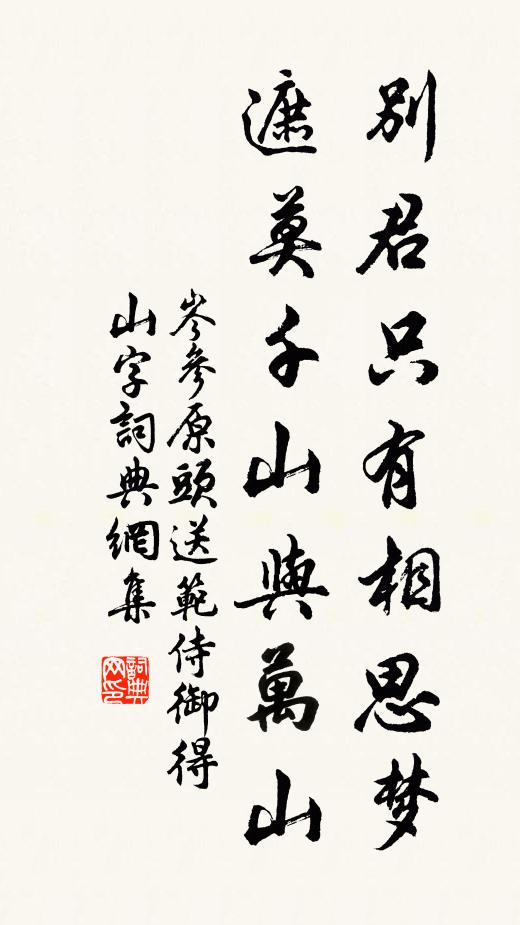 别君只有相思梦
遮莫千山與萬山
岑參原頭送範侍御得
山字詞典網集
詞典网印